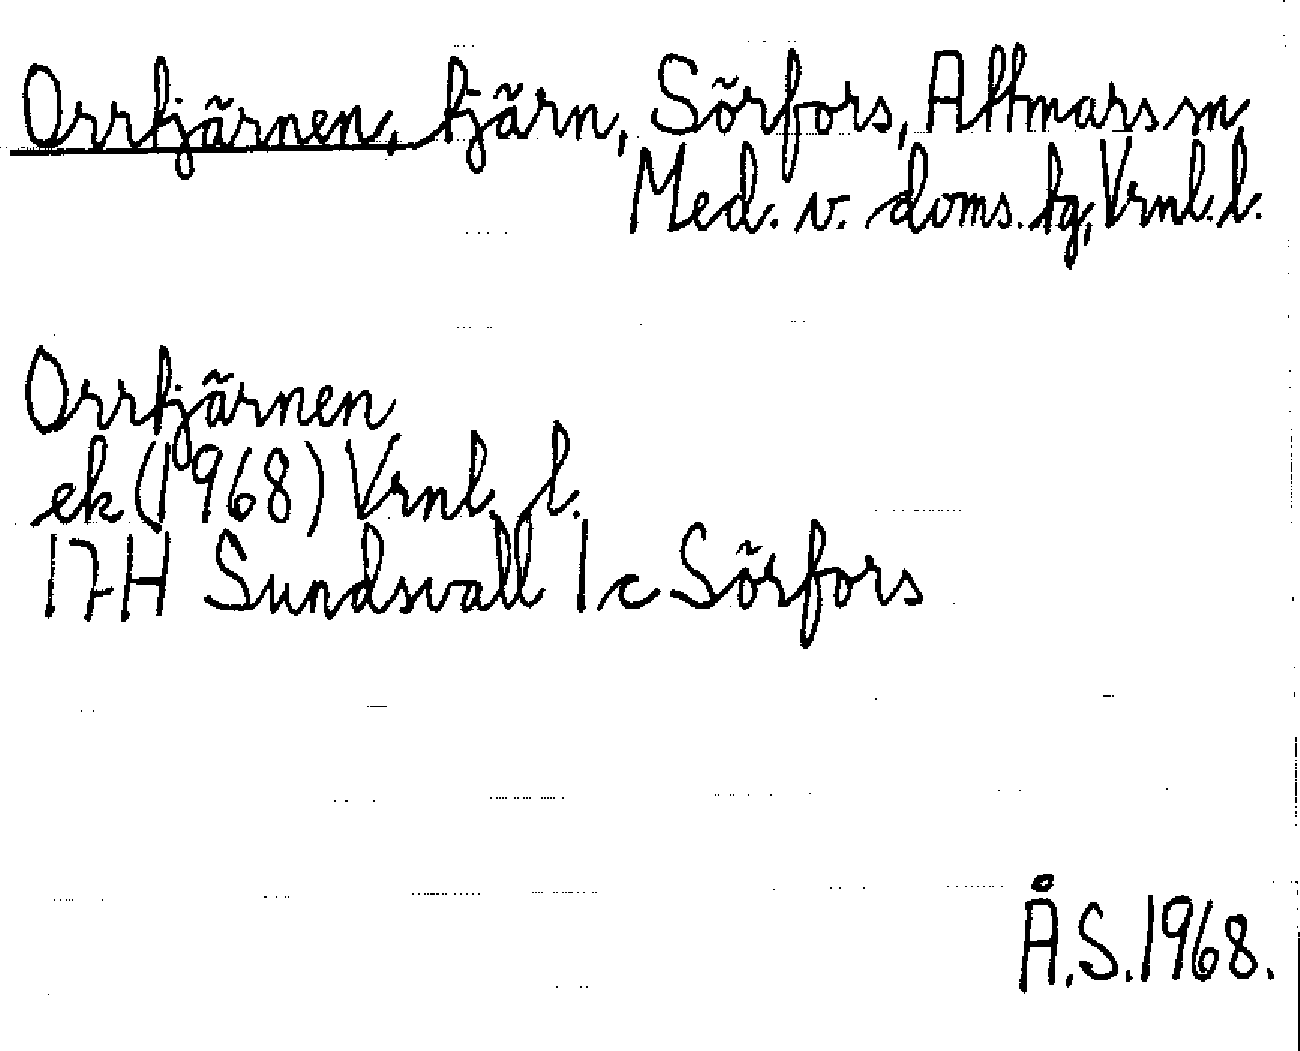 Orrtjärnen, tjärn, Sörfors, Attmars sn,
Med. v. doms. tg, Vrnl. l.
Orrtjärnen
ek (1968) Vrnl. l.
17H Sundsvall 1c Sörfors
Å.S. 1968.